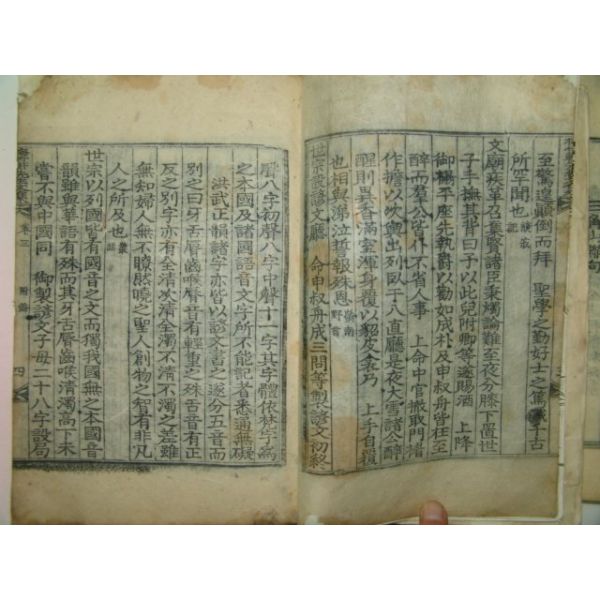 至驚遑顚倒而拜 聖學之勤好士之篤誠千古
所罕聞也
文廟疾革召集賢諸臣秉燭論難至夜分膝下置世
子手撫其背曰予以此兒附卿等遂賜酒 上降
御榻平座先執爵以勸如成朴及申叔舟皆在至
醉而羣公皆作不省人事 上命中官撤取門楣
作擔以次舁出列臥于入直廳是夜大雪諸公醉
醒則異香滿室渾身覆以貂皮衾乃 上手自覆
也相與涕泣誓報殊恩
世宗設諺文廳 命申叔舟成三問等製諺文初終
聲八字初聲八字中聲十一字其字體依梵字爲
之本國及諸國語音文字所不能記者悉通無礙
洪武正韻諸字亦皆以諺文書之遂分五音而
別之曰牙舌脣齒喉脣音有輕重之殊舌音有正
反之別字亦有全淸次淸全濁不淸不濁之差雖
無知婦人無不瞭然曉之聖人創物之智有非凡
人之所及也 叢話
世宗以列國皆有國音之文而獨我國無之本國音
韻雖與華語有殊而其牙舌脣齒喉淸濁高下未
嘗不與中國同 御製諺文子母二十八字設局
卷三 附錄 四